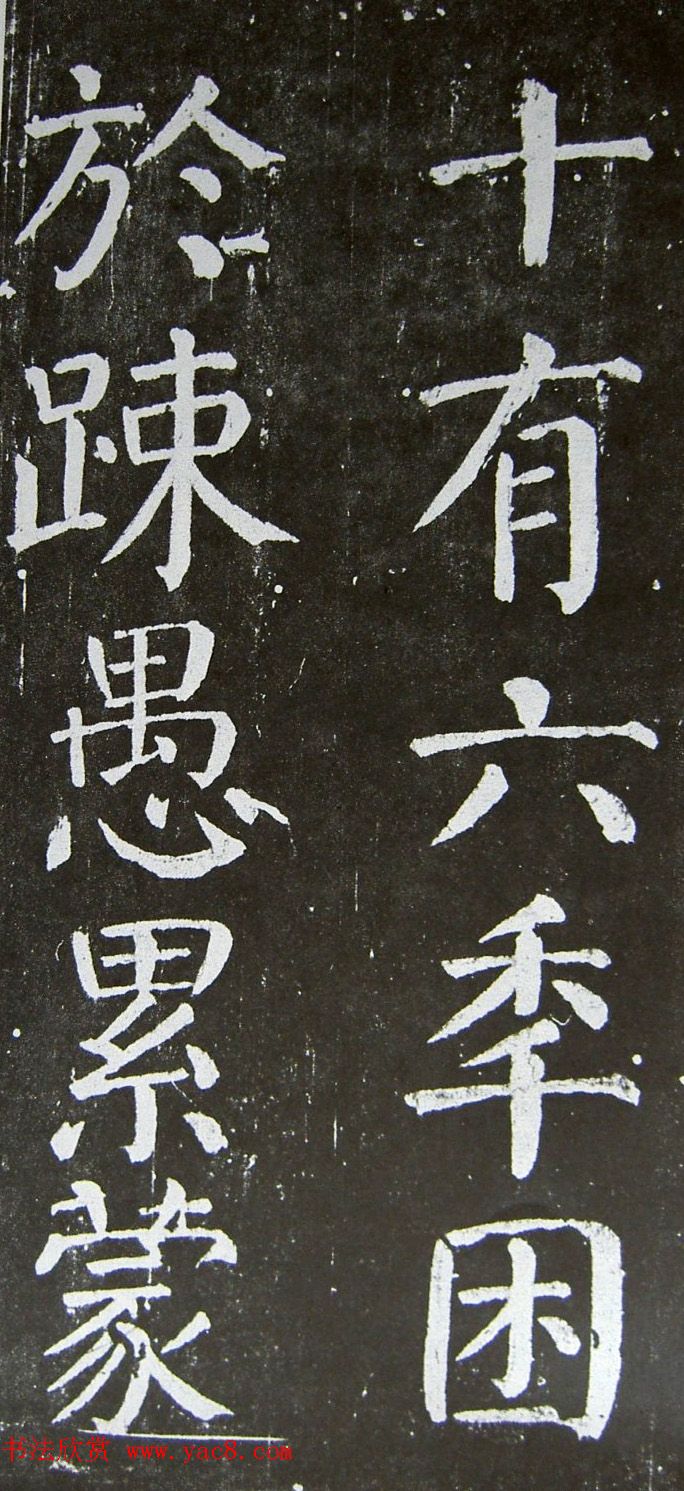 十有六秊困
於踈愚累蒙
书法欣赏 www.yac8.com